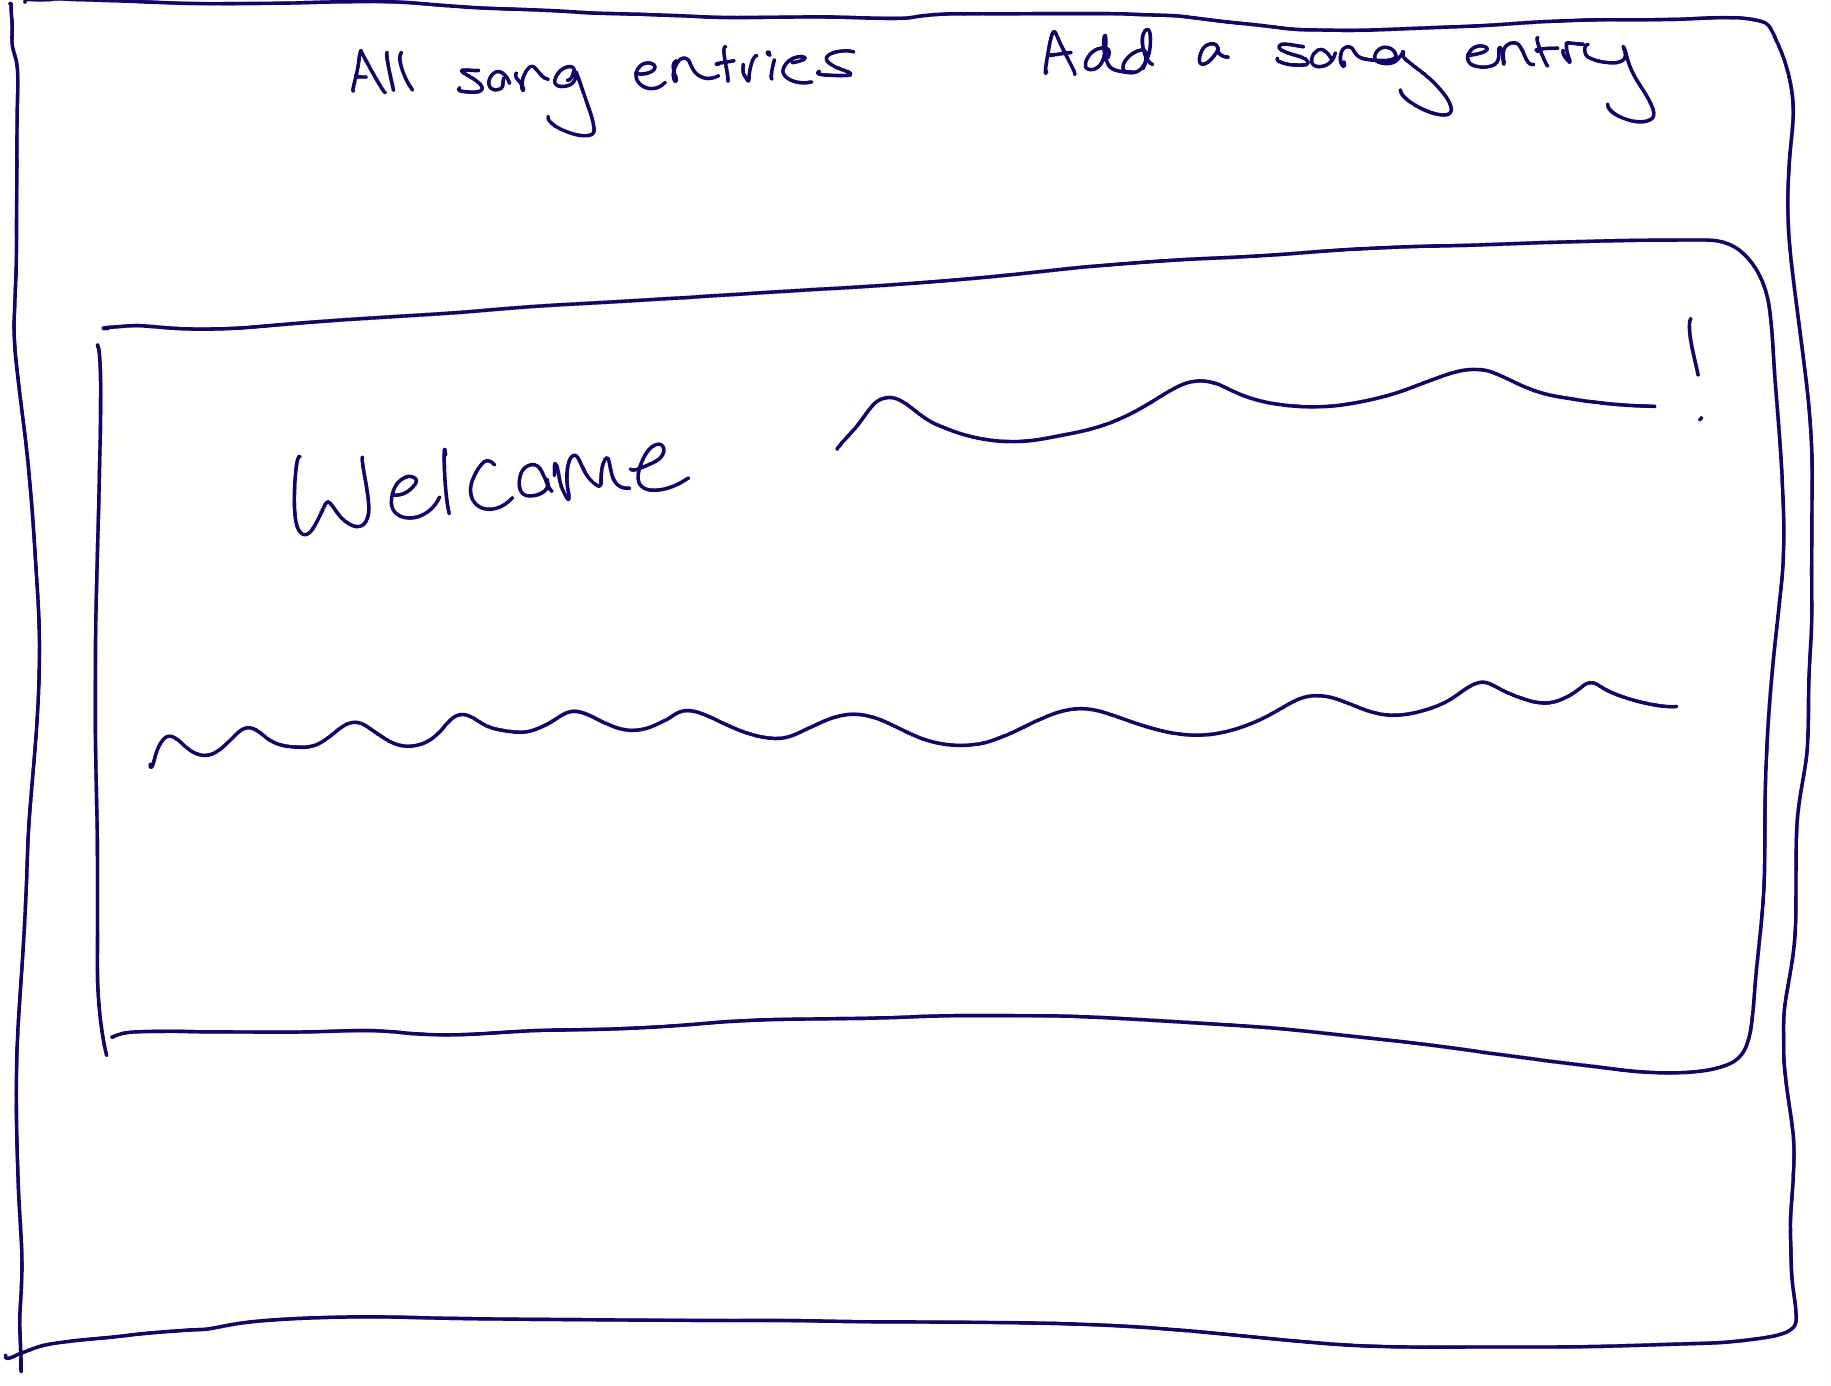 All song entries Add a song entry
Welcome !